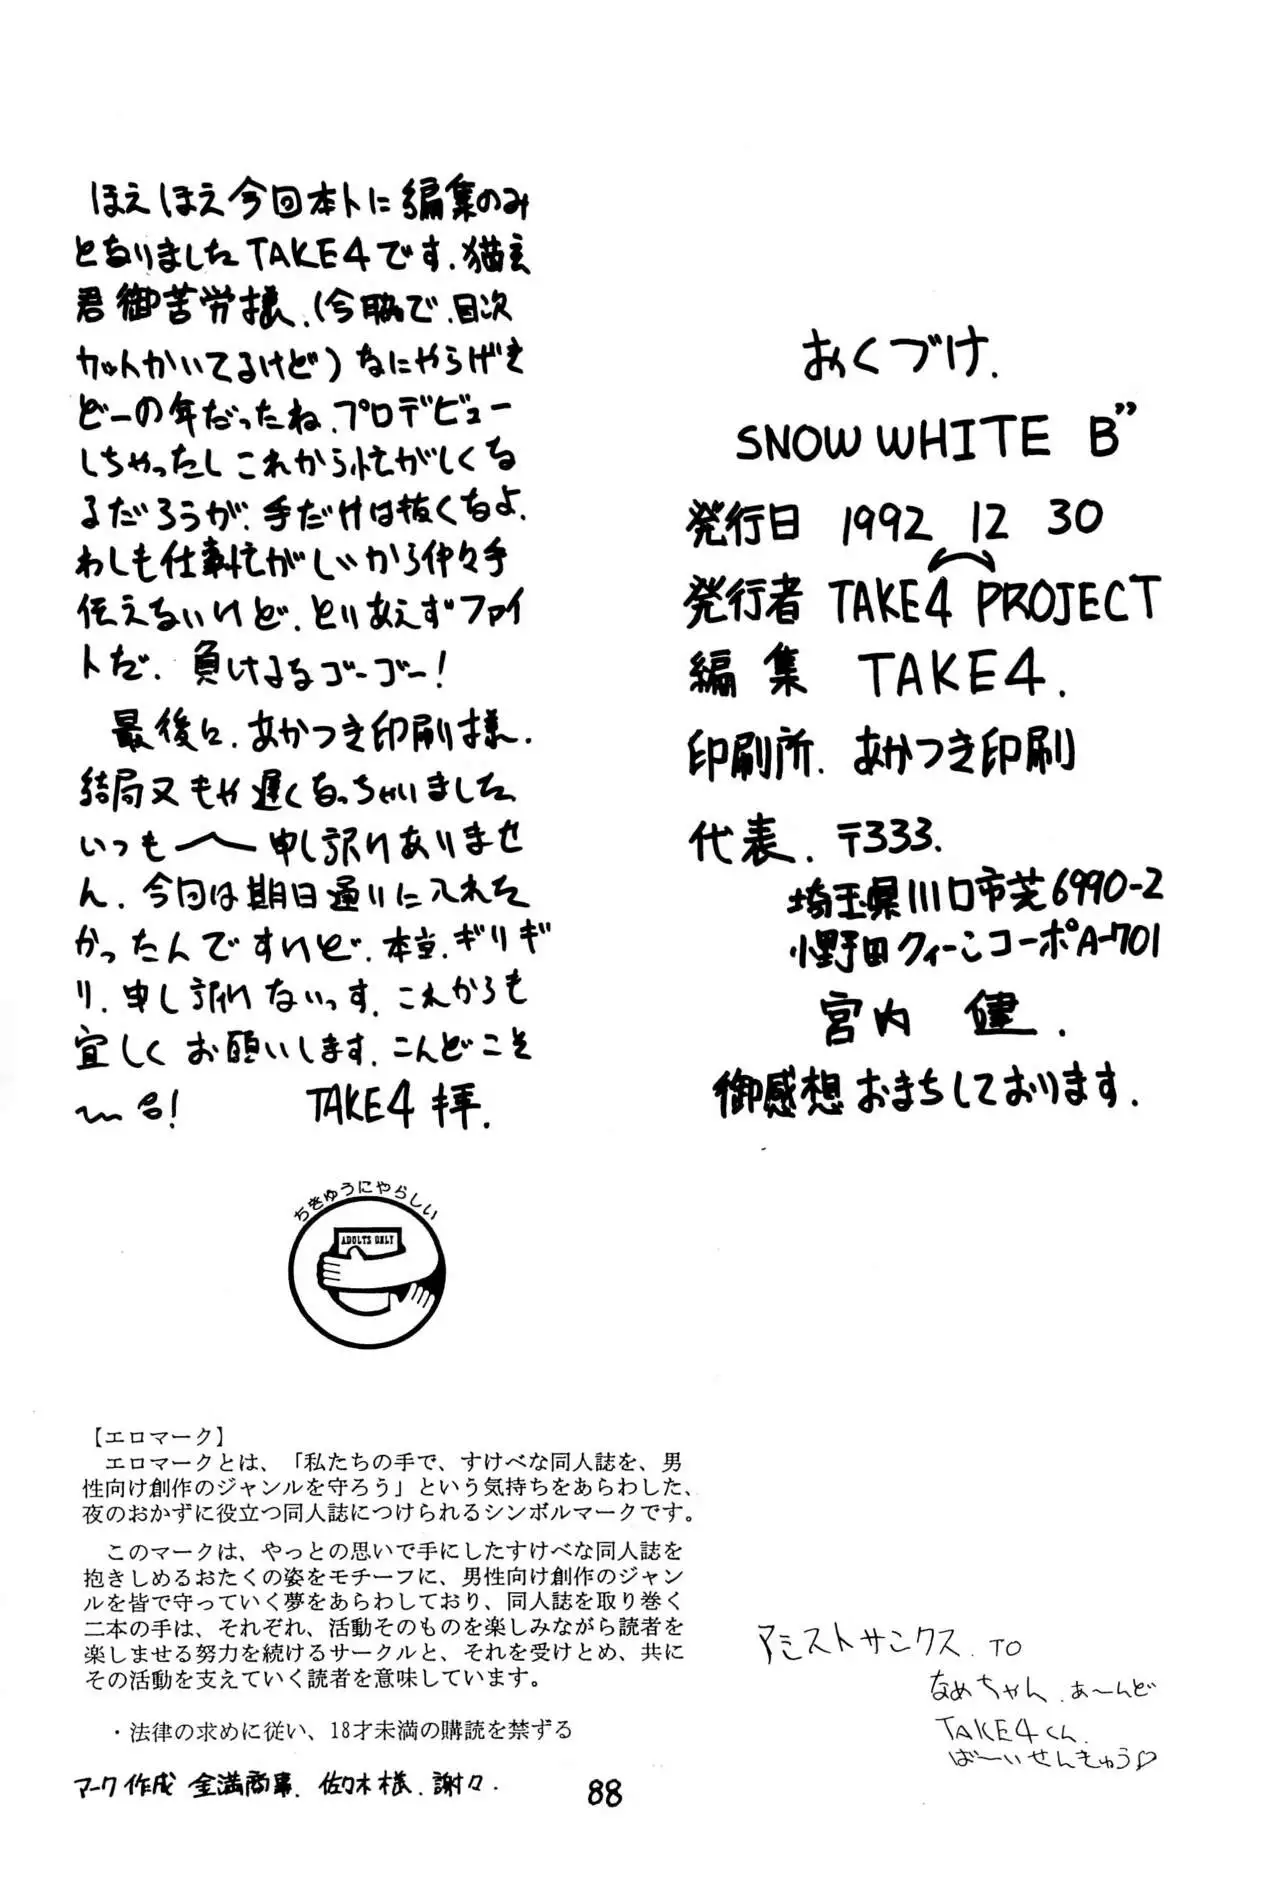 ほえほえ今回本トに編集のみ
となりましたTAKE4です.猫玄
君御苦労様.(今脇で.目次
カットかいてるけど)なにやらげき
どーの年だったね.プロデビュー
しちゃったしこれから忙がしくな
るだろうが.手だけは抜くなよ.
わしも仕事忙がしいから仲々手
伝えないけど.とりあえずファイ
トだ.負けるなゴーゴー!
最後に.あかつき印刷様.
結局又もや遅くなっちゃいました.
いつも〜申し訳けありませ
ん.今回は期日通りに入れた
かったんですけど.本当.ギリギ
リ.申し訳けないっす.これからも
宜しくお願いします.こんどこそ
〜る!
TAKE4 拝.
おくづけ.
SNOW WHITE B"
発行日 1992 12 30
発行者 TAKE4 PROJECT
編集 TAKE4.
印刷所.あかつき印刷
代表.〒333.
埼玉県川口市芝6990-2
小野田クィーンコーポA-701
宮内 健.
御感想おまちしております.
ちきゅうにやらしい
ADULTS ONLY
【エロマーク】
エロマークとは、「私たちの手で、すけべな同人誌を、男
性向け創作のジャンルを守ろう」という気持ちをあらわした、
夜のおかずに役立つ同人誌につけられるシンボルマークです。
このマークは、やっとの思いで手にしたすけべな同人誌を
抱きしめるおたくの姿をモチーフに、男性向け創作のジャン
ルを皆で守っていく夢をあらわしており、同人誌を取り巻く
二本の手は、それぞれ、活動そのものを楽しみながら読者を
楽しませる努力を続けるサークルと、それを受けとめ、共に
その活動を支えていく読者を意味しています。
・法律の求めに従い、18才未満の購読を禁ずる
マーク作成 金満商事.佐々木様.謝々.
88
アシストサンクス.TO
なめちゃん.あ〜んど
TAKE4くん.
ば〜いせんきゅう♡